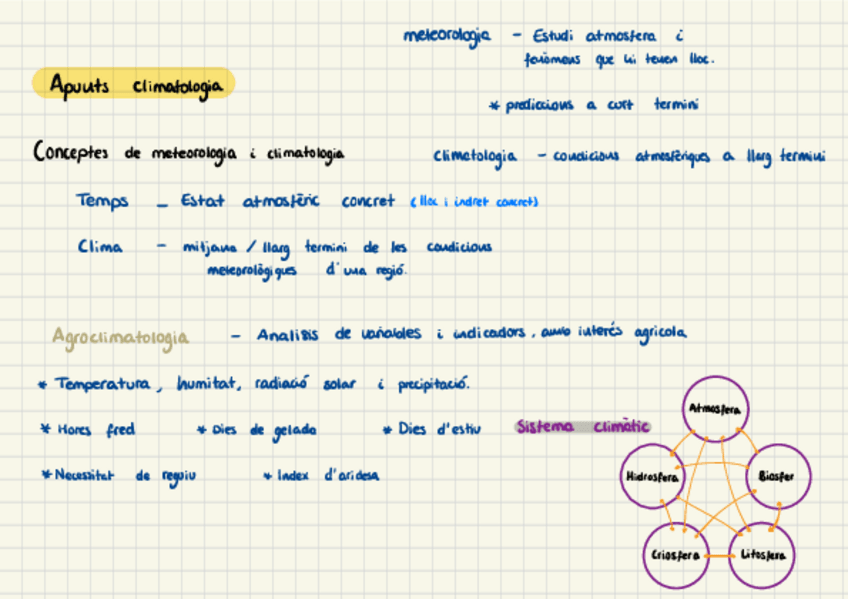 meteorologia - Estudi atmosfera i
fenòmens que hi tenen lloc.
Apunts climatologia
* prediccions a curt termini
Conceptes de meteorologia i climatologia
climatologia - condicions atmosfèriques a llarg termini
Temps - Estat atmosfèric concret (lloc i indret concret)
Clima - mitjana / llarg termini de les condicions
meteorològiques d'una regió.
Agroclimatologia - Analisis de variables i indicadors, amb interés agricola
* Temperatura, humitat, radiació solar i precipitació.
* Hores fred * Dies de gelada * Dies d'estiu
Sistema climàtic
* Necessitat de reguiu * Index d'aridesa
Atmosfera
Hidrosfera
Biosfer
Criosfera
Litosfera